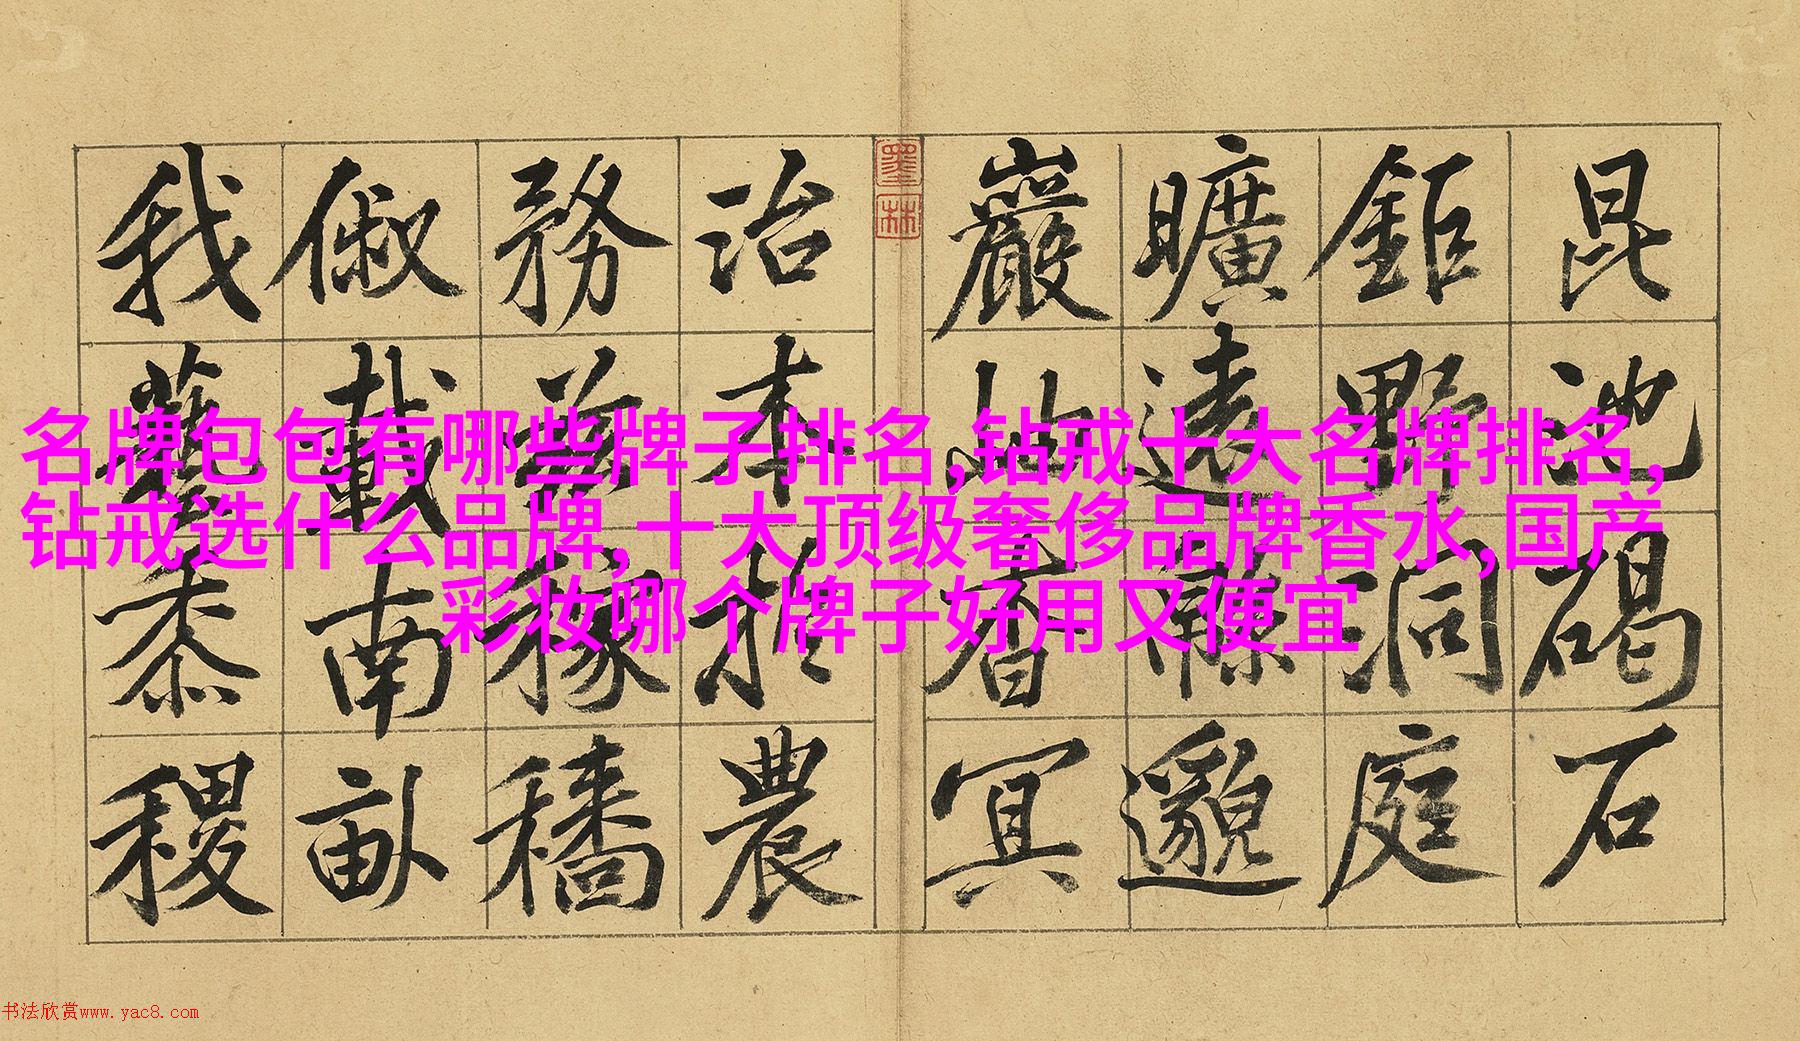 昆池碣石
鉅野洞庭
曠遠緜邈
巖岫杳冥
墨林
治本於農
務茲稼穡
俶載南畝
我藝黍稷
名牌包包有哪些牌子排名,钻戒十大名牌排名,
钻戒选什么品牌,十大顶级奢侈品牌香水,国产
彩妆哪个牌子好用又便宜
书法欣赏www.yac8.com